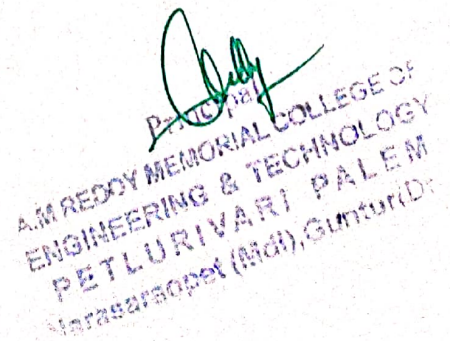 Principal
A.M REDDY MEMORIAL COLLEGE OF
ENGINEERING & TECHNOLOGY
PETLURIVARI PALEM
Narasaraopet (Mdl), Guntur (D